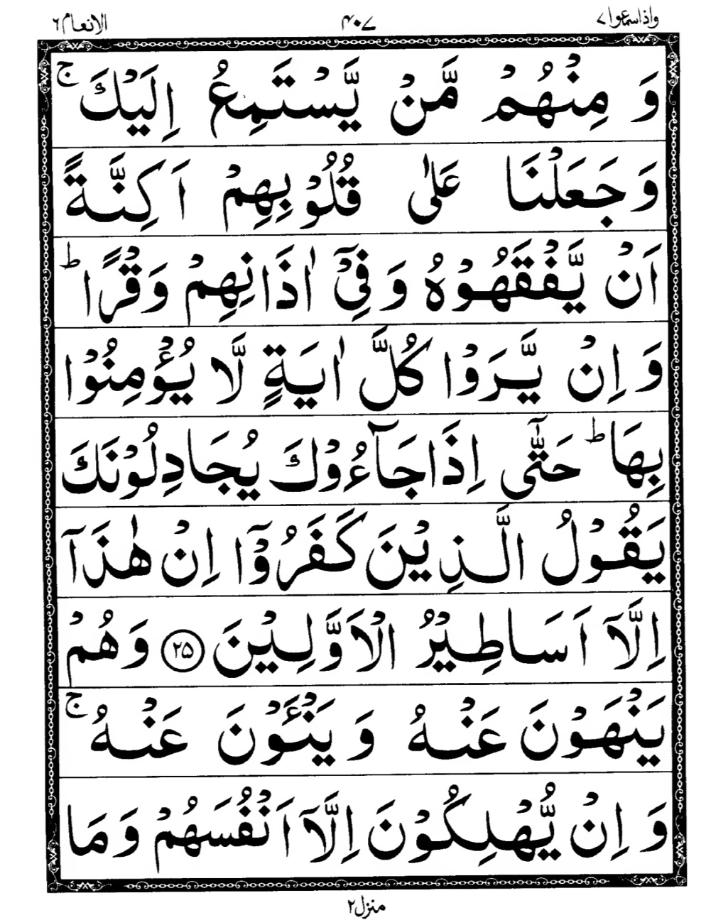 واذاسمعوا۷ ۴۰۷ الانعام۶
وَ مِنْهُمْ مَّنْ يَّسْتَمِعُ اِلَيْكَ ۚ
وَجَعَلْنَا عَلٰى قُلُوْبِهِمْ اَكِنَّةً
اَنْ يَّفْقَهُوْهُ وَ فِيْۤ اٰذَانِهِمْ وَقْرًا ؕ
وَ اِنْ يَّرَوْا كُلَّ اٰيَةٍ لَّا يُؤْمِنُوْا
بِهَا ؕ حَتّٰۤى اِذَا جَآءُوْكَ يُجَادِلُوْنَكَ
يَقُوْلُ الَّذِيْنَ كَفَرُوْۤا اِنْ هٰذَاۤ
اِلَّاۤ اَسَاطِيْرُ الْاَوَّلِيْنَ ۝۲۵ وَهُمْ
يَنْهَوْنَ عَنْهُ وَ يَنْـَٔوْنَ عَنْهُ ۚ
وَ اِنْ يُّهْلِكُوْنَ اِلَّاۤ اَنْفُسَهُمْ وَ مَا
منزل۲